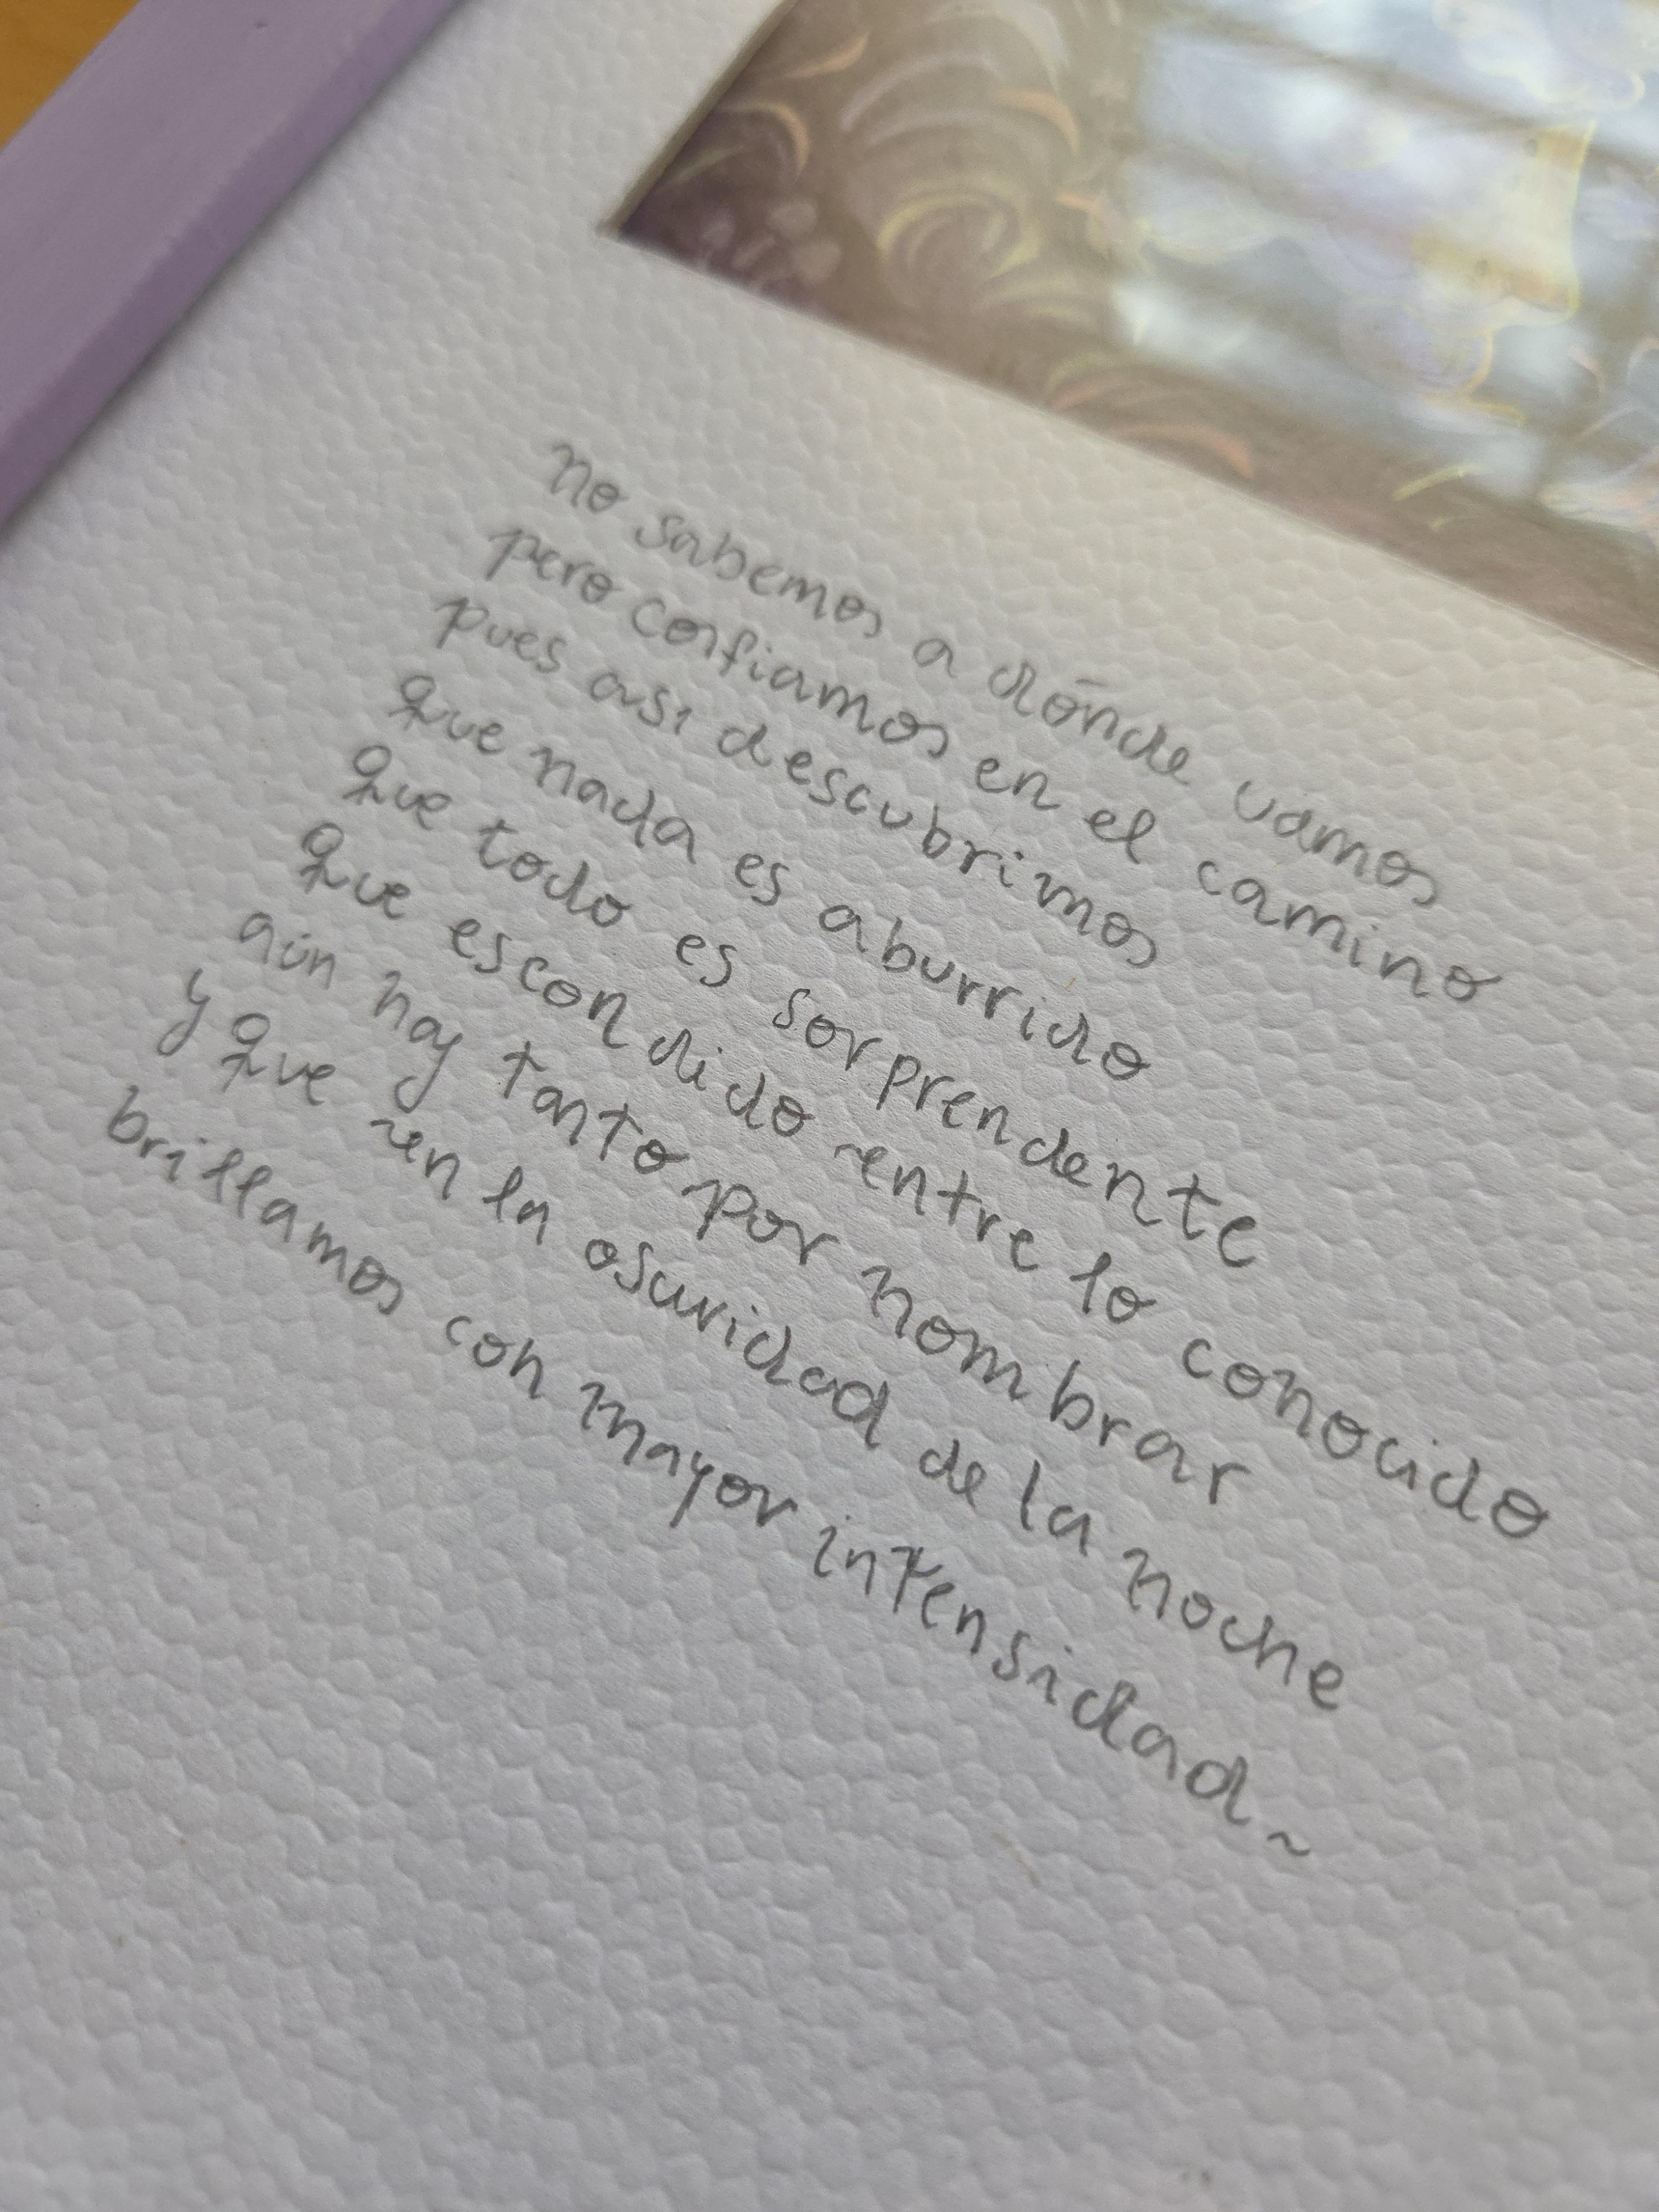 No sabemos a dónde vamos
pero confiamos en el camino
pues así descubrimos
que nada es aburrido
que todo es sorprendente
que escondido entre lo conocido
aún hay tanto por nombrar
y que en la oscuridad de la noche
brillamos con mayor intensidad~